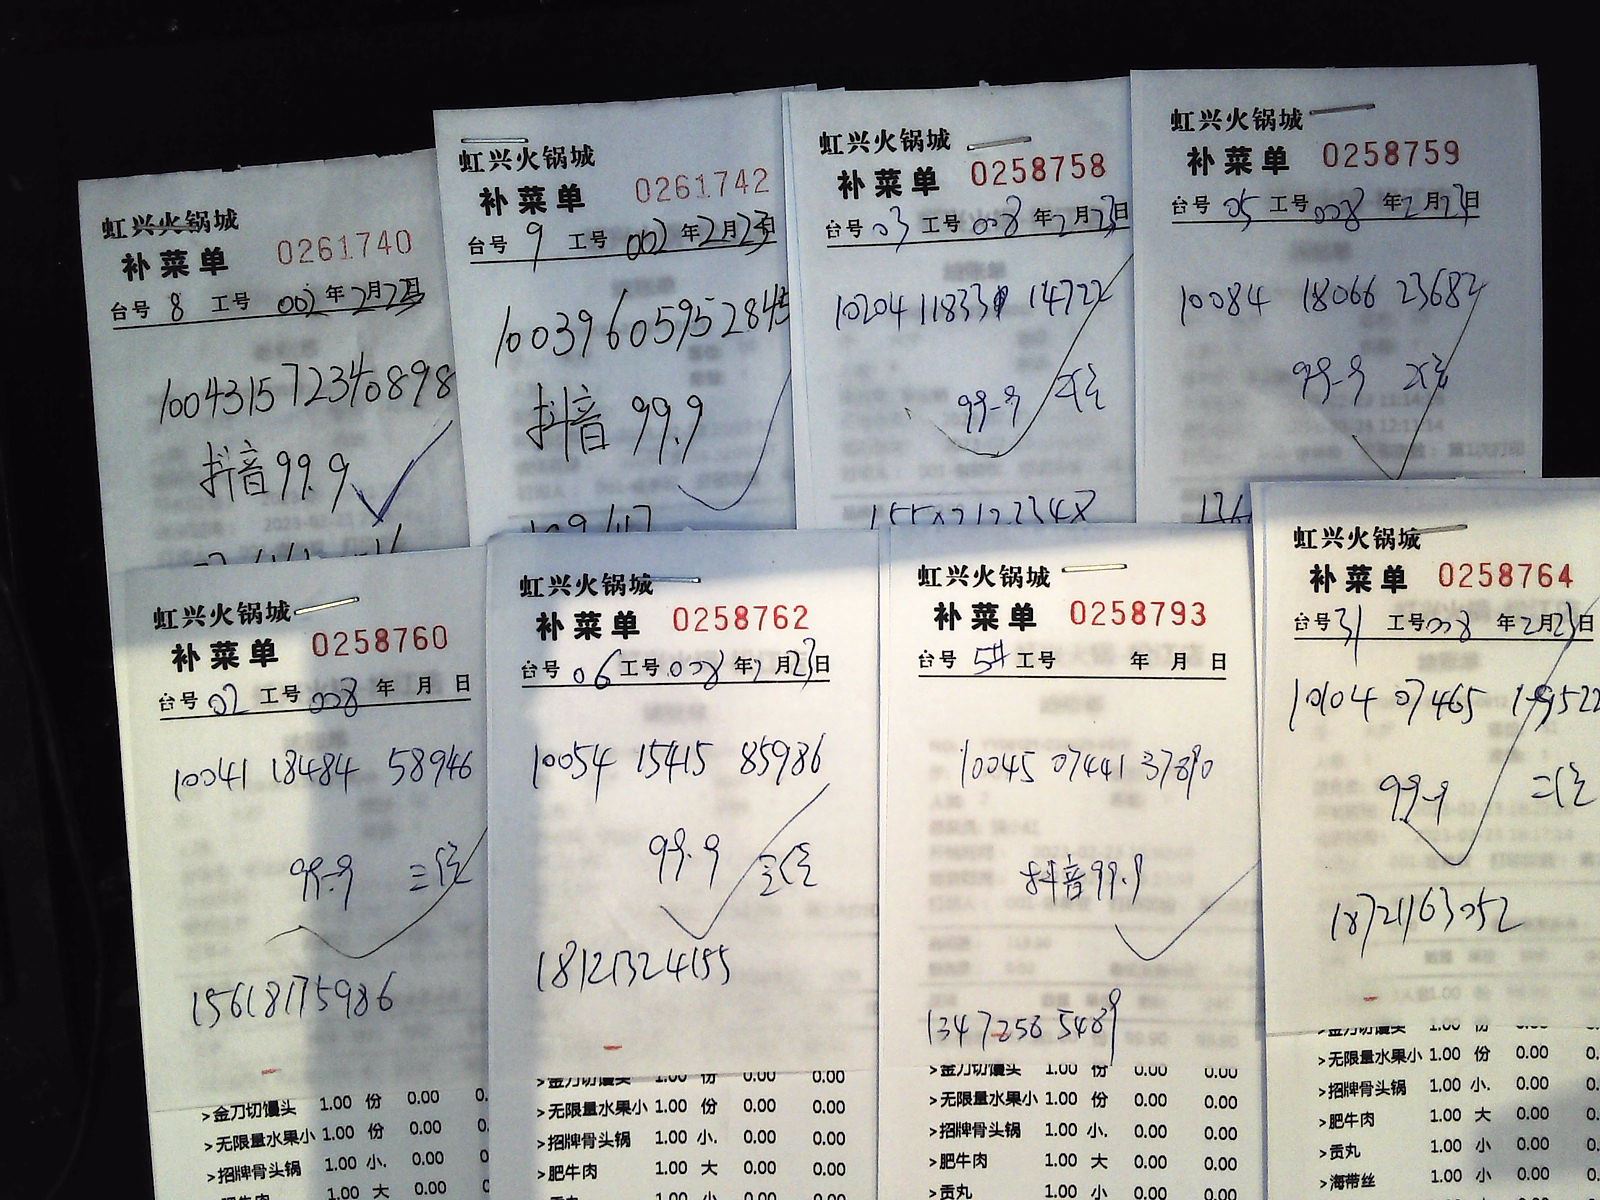 虹兴火锅城
补菜单 0261740
台号 8 工号 002 年2月23日
100431572340898
抖音99.9
虹兴火锅城
补菜单 0261742
台号 9 工号 002 年2月23日
10039605952843
抖音 99.9
虹兴火锅城
补菜单 0258758
台号 03 工号 008 年2月23日
10204 11833 14722
99.9
虹兴火锅城
补菜单 0258759
台号 05 工号 008 年2月23日
10084 18066 23682
99.9
虹兴火锅城
补菜单 0258760
台号 02 工号 008 年 月 日
10041 18484 58946
99.9 三位
15618175986
>金刀切馒头 1.00 份 0.00 0.
>无限量水果小 1.00 份 0.00 0.
>招牌骨头锅 1.00 小. 0.00 0.
1.00 大 0.00
虹兴火锅城
补菜单 0258762
台号 06 工号 008 年2月23日
10054 15415 85986
99.9 三位
18121324155
>金刀切馒头 1.00 份 0.00 0.00
>无限量水果小 1.00 份 0.00 0.00
>招牌骨头锅 1.00 小. 0.00 0.00
>肥牛肉 1.00 大 0.00 0.00
虹兴火锅城
补菜单 0258793
台号 5# 工号 年 月 日
10045 07441 37890
抖音99.9
1347256 5489
>金刀切馒头 1.00 份 0.00 0.00
>无限量水果小 1.00 份 0.00 0.00
>招牌骨头锅 1.00 小. 0.00 0.00
>肥牛肉 1.00 大 0.00 0.00
>贡丸 1.00 小 0.00 0.00
虹兴火锅城
补菜单 0258764
台号 31 工号 008 年2月23日
10104 07465 19522
99.9 二位
18721163052
>金刀切馒头 1.00 份 0.00 0.
>无限量水果小 1.00 份 0.00 0.
>招牌骨头锅 1.00 小. 0.00 0.
>肥牛肉 1.00 大 0.00 0.
>贡丸 1.00 小 0.00 0.
>海带丝 1.00 小 0.00 0.